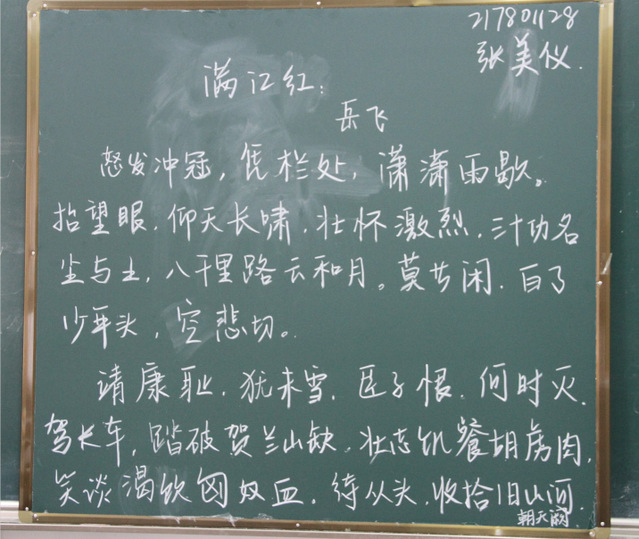 217801128
张美仪.
满江红:
岳飞
怒发冲冠,凭栏处,潇潇雨歇。
抬望眼.仰天长啸,壮怀激烈.三十功名
尘与土,八千里路云和月。莫等闲.白了
少年头,空悲切。
靖康耻.犹未雪.臣子恨.何时灭.
驾长车,踏破贺兰山缺.壮志饥餐胡虏肉,
笑谈渴饮匈奴血.待从头.收拾旧山河.
朝天阙